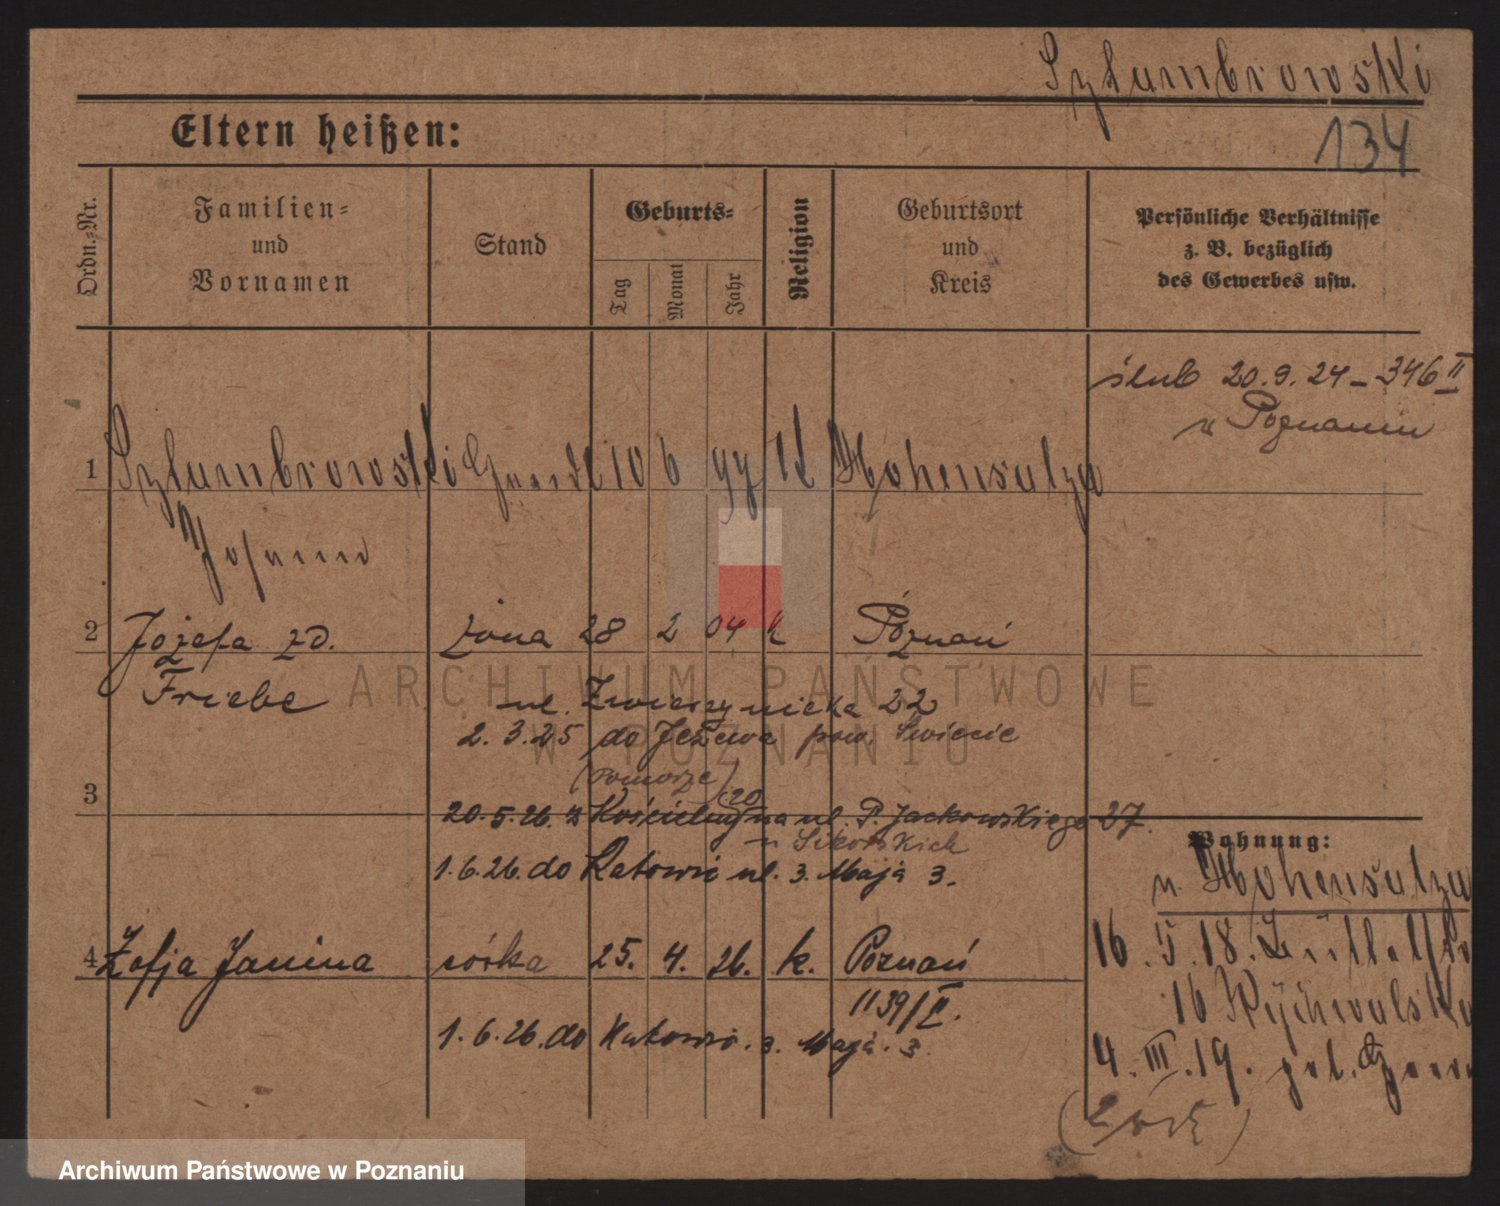 Szlumbrowski
134
Eltern heißen:
Ordn.-Nr.
Familien-
und
Vornamen
Stand
Geburts-
Tag
Monat
Jahr
Religion
Geburtsort
und
Kreis
Persönliche Verhältnisse
z. B. bezüglich
des Gewerbes usw.
ślub 20.9.24 – 346 II
w Poznaniu
1 Szlumbrowski 10 6 99 k Hohensalza
2 Józefa zd. żona 28 2 04 k Poznań
Friebe
ul. Zwierzyniecka 22
2.3.25 do Jeżewa pow. Świecie
(Pomorze)
3
20.5.26. z ul. P. Jackowskiego 27.
u Sikorskich
1.6.26. do Katowic ul. 3. Maja 3.
Wohnung:
n. Hohensalza
16.5.18.
16
4.III.19.
4 Zofja Janina córka 25. 4. 26. k. Poznań
1139/II.
1.6.26. do Katowic. 3. Maja. 3.
ARCHIWUM PAŃSTWOWE
W POZNANIU
Archiwum Państwowe w Poznaniu